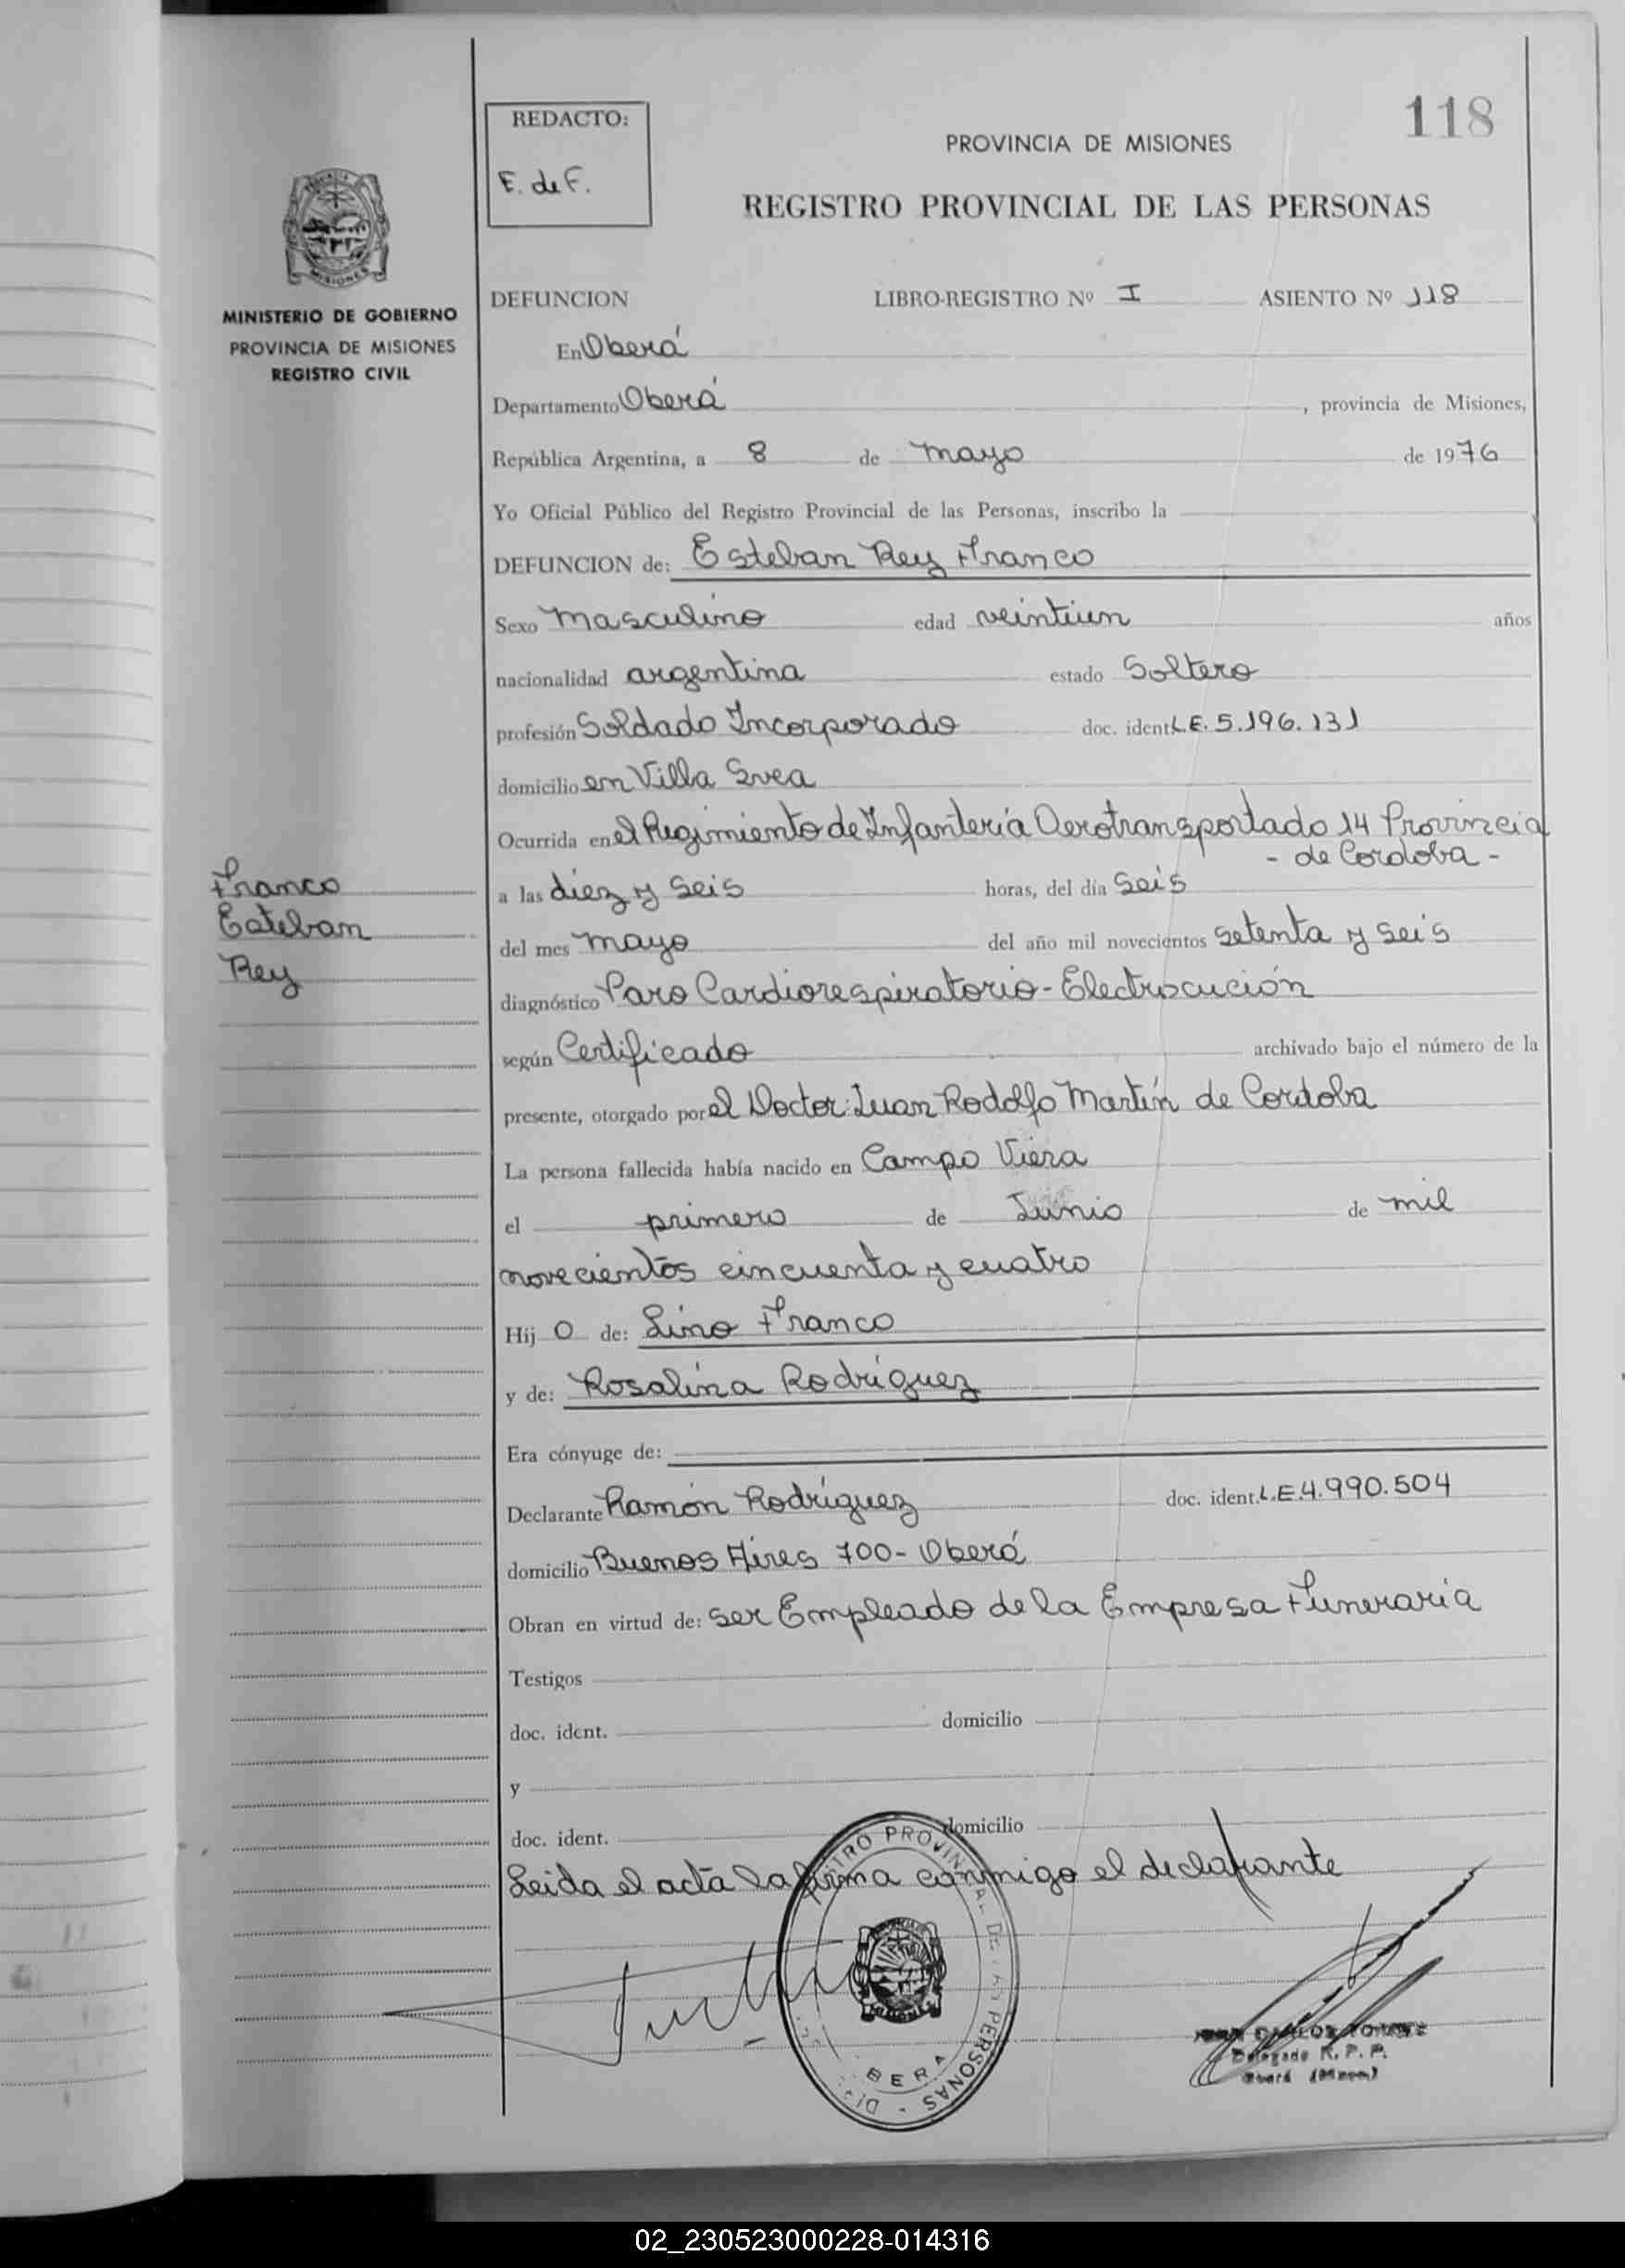 118
REDACTO:
E. de F.
PROVINCIA DE MISIONES
REGISTRO PROVINCIAL DE LAS PERSONAS
MISIONES
MINISTERIO DE GOBIERNO
PROVINCIA DE MISIONES
REGISTRO CIVIL
DEFUNCION LIBRO-REGISTRO Nº I ASIENTO Nº 118
En Oberá
Departamento Oberá , provincia de Misiones,
República Argentina, a 8 de mayo de 1976
Yo Oficial Público del Registro Provincial de las Personas, inscribo la
DEFUNCION de: Esteban Rey Franco
Sexo masculino edad veintiun años
nacionalidad argentina estado Soltero
profesión Soldado Incorporado doc. ident. L.E. 5.196.131
domicilio en Villa Svea
Ocurrida en el Regimiento de Infantería Aerotransportado 14 Provincia
- de Cordoba -
a las diez y seis horas, del día seis
del mes mayo del año mil novecientos setenta y seis
Franco
Esteban
Rey
diagnóstico Paro Cardiorespiratorio - Electrocución
según Certificado archivado bajo el número de la
presente, otorgado por el Doctor: Juan Rodolfo Martín de Cordoba
La persona fallecida había nacido en Campo Viera
el primero de Junio de mil
novecientos cincuenta y cuatro
Hij o de: Lino Franco
y de: Rosalina Rodríguez
Era cónyuge de:
Declarante Ramón Rodríguez doc. ident. L.E. 4.990.504
domicilio Buenos Aires 700 - Oberá
Obran en virtud de: ser Empleado de la Empresa Funeraria
Testigos
doc. ident. domicilio
y
doc. ident. domicilio
Leida el acta la firma conmigo el declarante
REGISTRO PROVINCIAL DE LAS PERSONAS
MISIONES
CARLOS
Delegado R. P. P.
Oberá (Mnes)
02_230523000228-014316